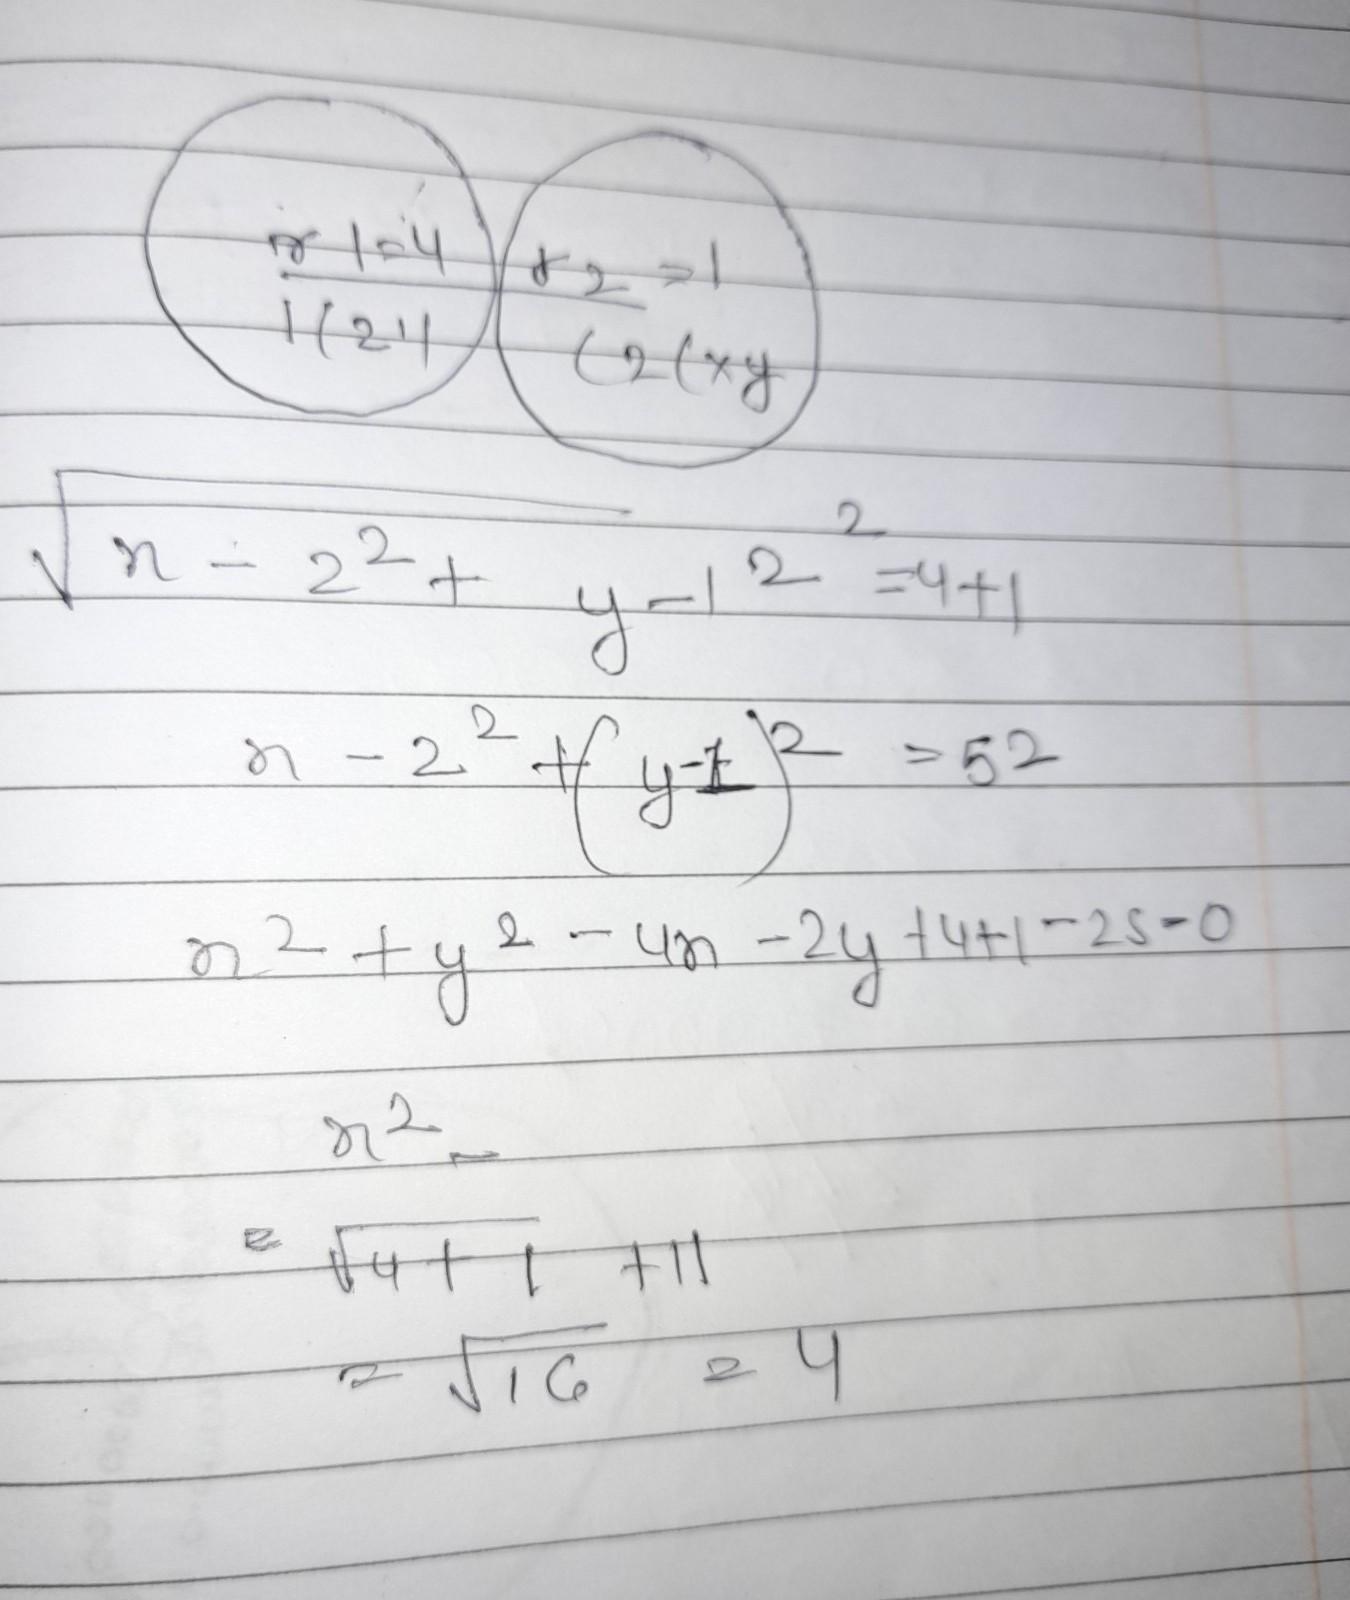 r1=4
r2=1
1(21)
C2(xy
√n-2²+ y-1 2² =4+1
n-2²+(y-1)2 =52
n²+y²-4n-2y+4+1-25-0
n²-
= √4+1 +11
= √16 = 4